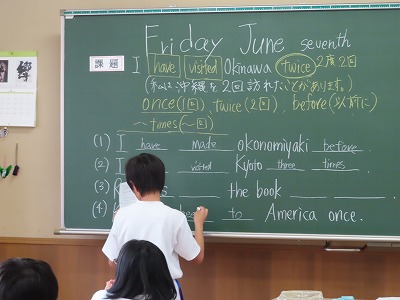 Friday June seventh
課題 I have visited Okinawa twice 2度2回
(私は沖縄を2回訪れたことがあります。)
once(1回)、twice(2回)、before(以前に)
～times(～回)
(1) I have made okonomiyaki before.
(2) I visited Kyoto three times.
(3) the book
(4) to America once.